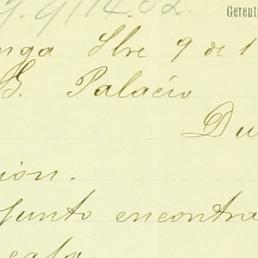 Gerent
nga Sbre 9 de 1
G. Palacio
Du
ión.
junto encontra